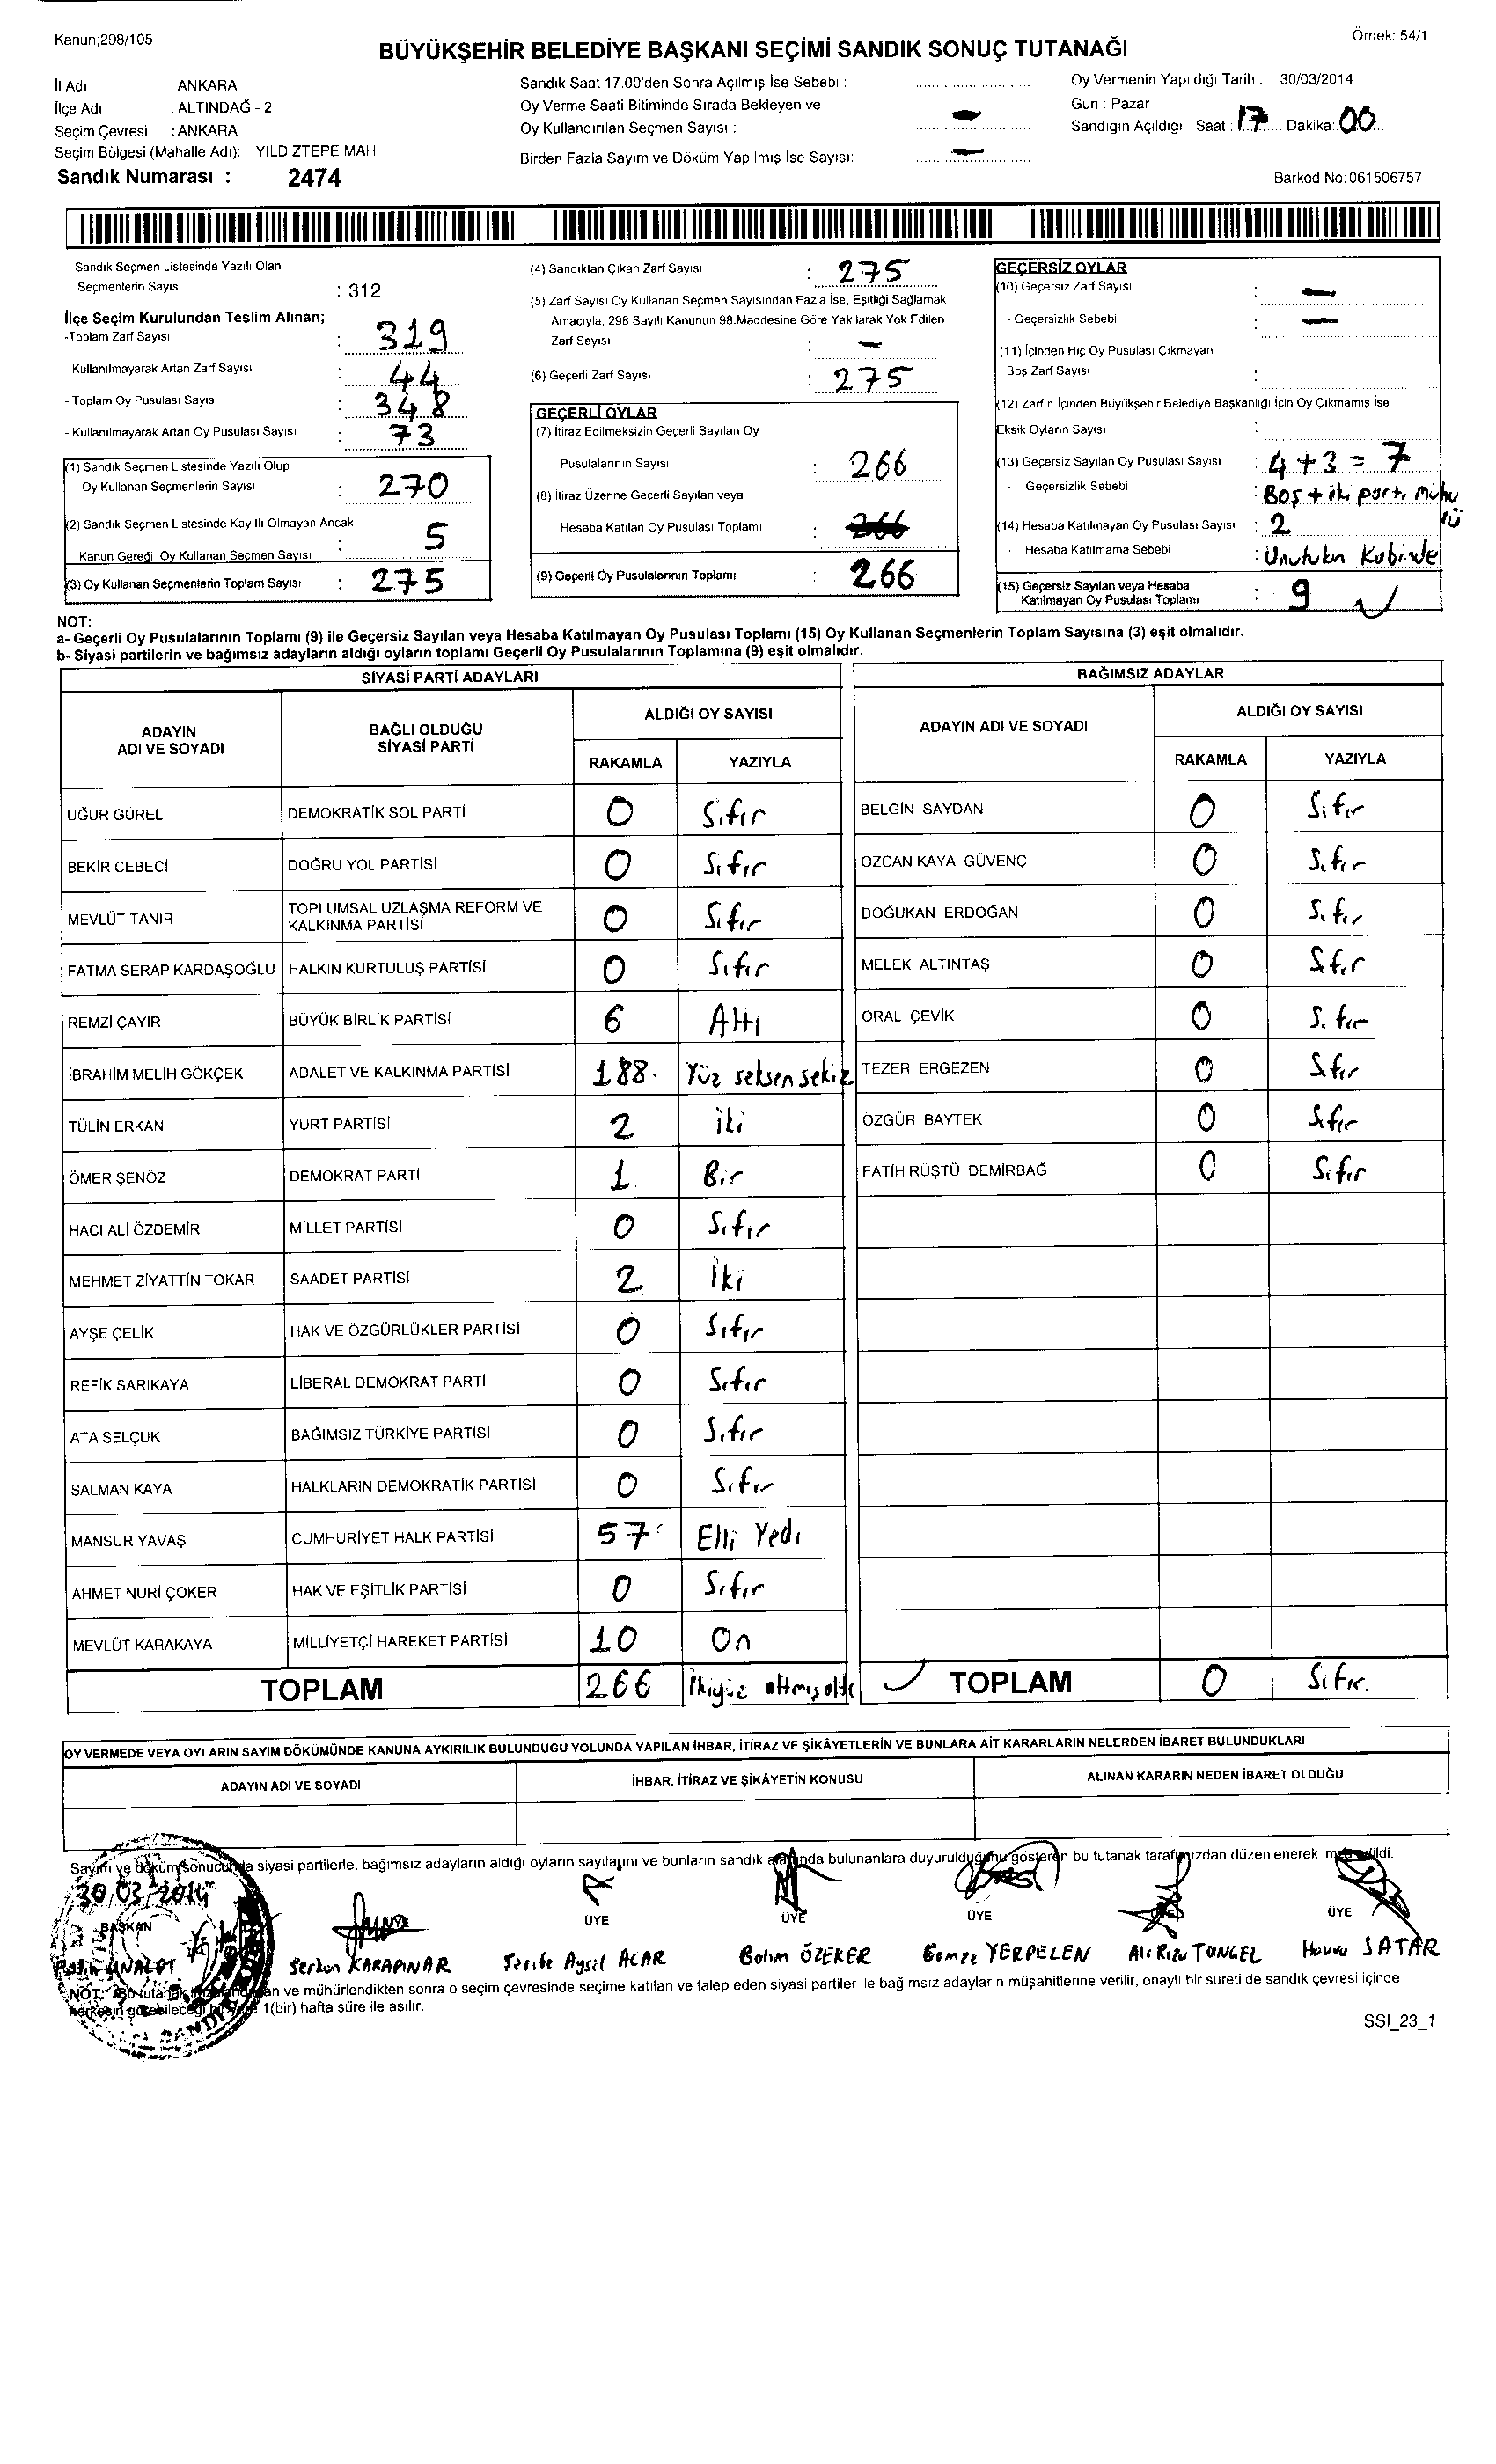 Kanun;298/105
Örnek: 54/1
BÜYÜKŞEHİR BELEDİYE BAŞKANI SEÇİMİ SANDIK SONUÇ TUTANAĞI
İl Adı : ANKARA
İlçe Adı : ALTINDAĞ - 2
Seçim Çevresi : ANKARA
Seçim Bölgesi (Mahalle Adı): YILDIZTEPE MAH.
Sandık Numarası : 2474
Sandık Saat 17.00'den Sonra Açılmış İse Sebebi :
Oy Verme Saati Bitiminde Sırada Bekleyen ve
Oy Kullandırılan Seçmen Sayısı : -
Birden Fazla Sayım ve Döküm Yapılmış İse Sayısı: -
Oy Vermenin Yapıldığı Tarih : 30/03/2014
Gün : Pazar
Sandığın Açıldığı Saat : 17 Dakika: 00
Barkod No: 061506757
- Sandık Seçmen Listesinde Yazılı Olan
Seçmenlerin Sayısı : 312
İlçe Seçim Kurulundan Teslim Alınan;
-Toplam Zarf Sayısı : 319
- Kullanılmayarak Artan Zarf Sayısı : 44
- Toplam Oy Pusulası Sayısı : 348
- Kullanılmayarak Artan Oy Pusulası Sayısı : 73
(1) Sandık Seçmen Listesinde Yazılı Olup
Oy Kullanan Seçmenlerin Sayısı : 270
(2) Sandık Seçmen Listesinde Kayıtlı Olmayan Ancak
Kanun Gereği Oy Kullanan Seçmen Sayısı : 5
(3) Oy Kullanan Seçmenlerin Toplam Sayısı : 275
(4) Sandıktan Çıkan Zarf Sayısı : 275
(5) Zarf Sayısı Oy Kullanan Seçmen Sayısından Fazla İse, Eşitliği Sağlamak
Amacıyla; 298 Sayılı Kanunun 98.Maddesine Göre Yakılarak Yok Edilen
Zarf Sayısı : -
(6) Geçerli Zarf Sayısı : 275
GEÇERLİ OYLAR
(7) İtiraz Edilmeksizin Geçerli Sayılan Oy
Pusulalarının Sayısı : 266
(8) İtiraz Üzerine Geçerli Sayılan veya
Hesaba Katılan Oy Pusulası Toplamı : 266
(9) Geçerli Oy Pusulalarının Toplamı : 266
GEÇERSİZ OYLAR
(10) Geçersiz Zarf Sayısı : -
- Geçersizlik Sebebi : -
(11) İçinden Hiç Oy Pusulası Çıkmayan
Boş Zarf Sayısı :
(12) Zarfın İçinden Büyükşehir Belediye Başkanlığı İçin Oy Çıkmamış İse
Eksik Oyların Sayısı :
(13) Geçersiz Sayılan Oy Pusulası Sayısı : 4+3=7
- Geçersizlik Sebebi : Boş + iki parti mührü
(14) Hesaba Katılmayan Oy Pusulası Sayısı : 2
- Hesaba Katılmama Sebebi : Unutulan Kabinde
(15) Geçersiz Sayılan veya Hesaba
Katılmayan Oy Pusulası Toplamı : 9
NOT:
a- Geçerli Oy Pusulalarının Toplamı (9) ile Geçersiz Sayılan veya Hesaba Katılmayan Oy Pusulası Toplamı (15) Oy Kullanan Seçmenlerin Toplam Sayısına (3) eşit olmalıdır.
b- Siyasi partilerin ve bağımsız adayların aldığı oyların toplamı Geçerli Oy Pusulalarının Toplamına (9) eşit olmalıdır.
SİYASİ PARTİ ADAYLARI
BAĞIMSIZ ADAYLAR
ADAYIN ADI VE SOYADI
BAĞLI OLDUĞU SİYASİ PARTİ
ALDIĞI OY SAYISI
RAKAMLA YAZIYLA
ADAYIN ADI VE SOYADI
ALDIĞI OY SAYISI
RAKAMLA YAZIYLA
UĞUR GÜREL DEMOKRATİK SOL PARTİ 0 Sıfır BELGİN SAYDAN 0 Sıfır
BEKİR CEBECİ DOĞRU YOL PARTİSİ 0 Sıfır ÖZCAN KAYA GÜVENÇ 0 Sıfır
MEVLÜT TANIR TOPLUMSAL UZLAŞMA REFORM VE KALKINMA PARTİSİ 0 Sıfır DOĞUKAN ERDOĞAN 0 Sıfır
FATMA SERAP KARDAŞOĞLU HALKIN KURTULUŞ PARTİSİ 0 Sıfır MELEK ALTINTAŞ 0 Sıfır
REMZİ ÇAYIR BÜYÜK BİRLİK PARTİSİ 6 Altı ORAL ÇEVİK 0 Sıfır
İBRAHİM MELİH GÖKÇEK ADALET VE KALKINMA PARTİSİ 188 Yüz seksen sekiz TEZER ERGEZEN 0 Sıfır
TÜLİN ERKAN YURT PARTİSİ 2 iki ÖZGÜR BAYTEK 0 Sıfır
ÖMER ŞENÖZ DEMOKRAT PARTİ 1 Bir FATİH RÜŞTÜ DEMİRBAĞ 0 Sıfır
HACI ALİ ÖZDEMİR MİLLET PARTİSİ 0 Sıfır
MEHMET ZİYATTİN TOKAR SAADET PARTİSİ 2 İki
AYŞE ÇELİK HAK VE ÖZGÜRLÜKLER PARTİSİ 0 Sıfır
REFİK SARIKAYA LİBERAL DEMOKRAT PARTİ 0 Sıfır
ATA SELÇUK BAĞIMSIZ TÜRKİYE PARTİSİ 0 Sıfır
SALMAN KAYA HALKLARIN DEMOKRATİK PARTİSİ 0 Sıfır
MANSUR YAVAŞ CUMHURİYET HALK PARTİSİ 57 Elli Yedi
AHMET NURİ ÇOKER HAK VE EŞİTLİK PARTİSİ 0 Sıfır
MEVLÜT KARAKAYA MİLLİYETÇİ HAREKET PARTİSİ 10 On
TOPLAM 266 İkiyüz altmış altı TOPLAM 0 Sıfır.
OY VERMEDE VEYA OYLARIN SAYIM DÖKÜMÜNDE KANUNA AYKIRILIK BULUNDUĞU YOLUNDA YAPILAN İHBAR, İTİRAZ VE ŞİKÂYETLERİN VE BUNLARA AİT KARARLARIN NELERDEN İBARET BULUNDUKLARI
ADAYIN ADI VE SOYADI İHBAR, İTİRAZ VE ŞİKÂYETİN KONUSU ALINAN KARARIN NEDEN İBARET OLDUĞU
Sayım ve döküm sonucunda siyasi partilerle, bağımsız adayların aldığı oyların sayılarını ve bunların sandık bulunanlara duyurulduğunu gösteren bu tutanak tarafımızdan düzenlenerek
30/03/2014
BAŞKAN ÜYE ÜYE ÜYE ÜYE
Serkan KARAPINAR Şerife Aysel ACAR ÖZEKER Gamze YERPELEN Ali Rıza TUNGEL Havva SATAR
NOT: Bu tutanak ve mühürlendikten sonra o seçim çevresinde seçime katılan ve talep eden siyasi partiler ile bağımsız adayların müşahitlerine verilir, onaylı bir sureti de sandık çevresi içinde
herkesin görebileceği bir yere 1(bir) hafta süre ile asılır.
SSI_23_1